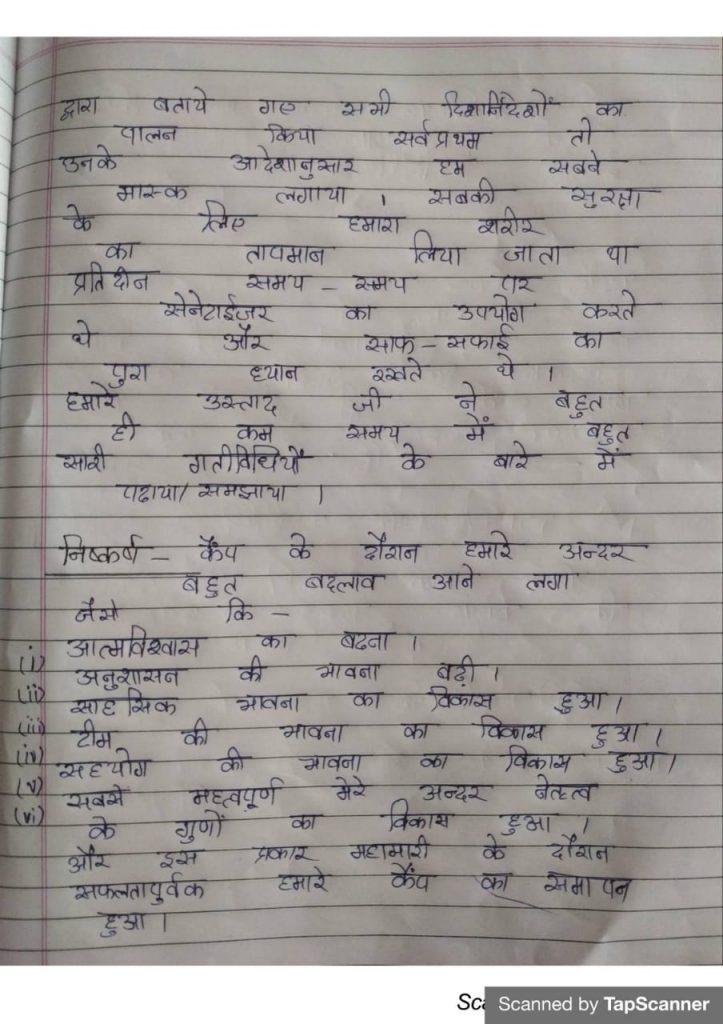 द्वारा बताये गए सभी दिशानिर्देशों का
पालन किया सर्वप्रथम तो
उनके आदेशानुसार हम सबने
मास्क लगाया । सबकी सुरक्षा
के लिए हमारा शरीर
का तापमान लिया जाता था
प्रतिदीन समय - समय पर
सेनेटाईजर का उपयोग करते
थे और साफ - सफाई का
पुरा ध्यान रखते थे ।
हमारे उस्ताद जी ने बहुत
ही कम समय में बहुत
सारी गतीविधियों के बारे में
पढाया/ समझाया ।
निष्कर्ष - कैंप के दौरान हमारे अन्दर
बहुत बदलाव आने लगा
जैसे कि -
(i) आत्मविश्वास का बढना ।
(ii) अनुशासन की भावना बढ़ी ।
(iii) साहसिक भावना का विकास हुआ ।
(iv) टीम की भावना का विकास हुआ ।
(v) सहयोग की भावना का विकास हुआ ।
(vi) सबसे महत्वपूर्ण मेरे अन्दर नेतृत्व
के गुणों का विकास हुआ ।
और इस प्रकार महामारी के दौरान
सफलतापुर्वक हमारे कैंप का समापन
हुआ ।
Scanned by TapScanner